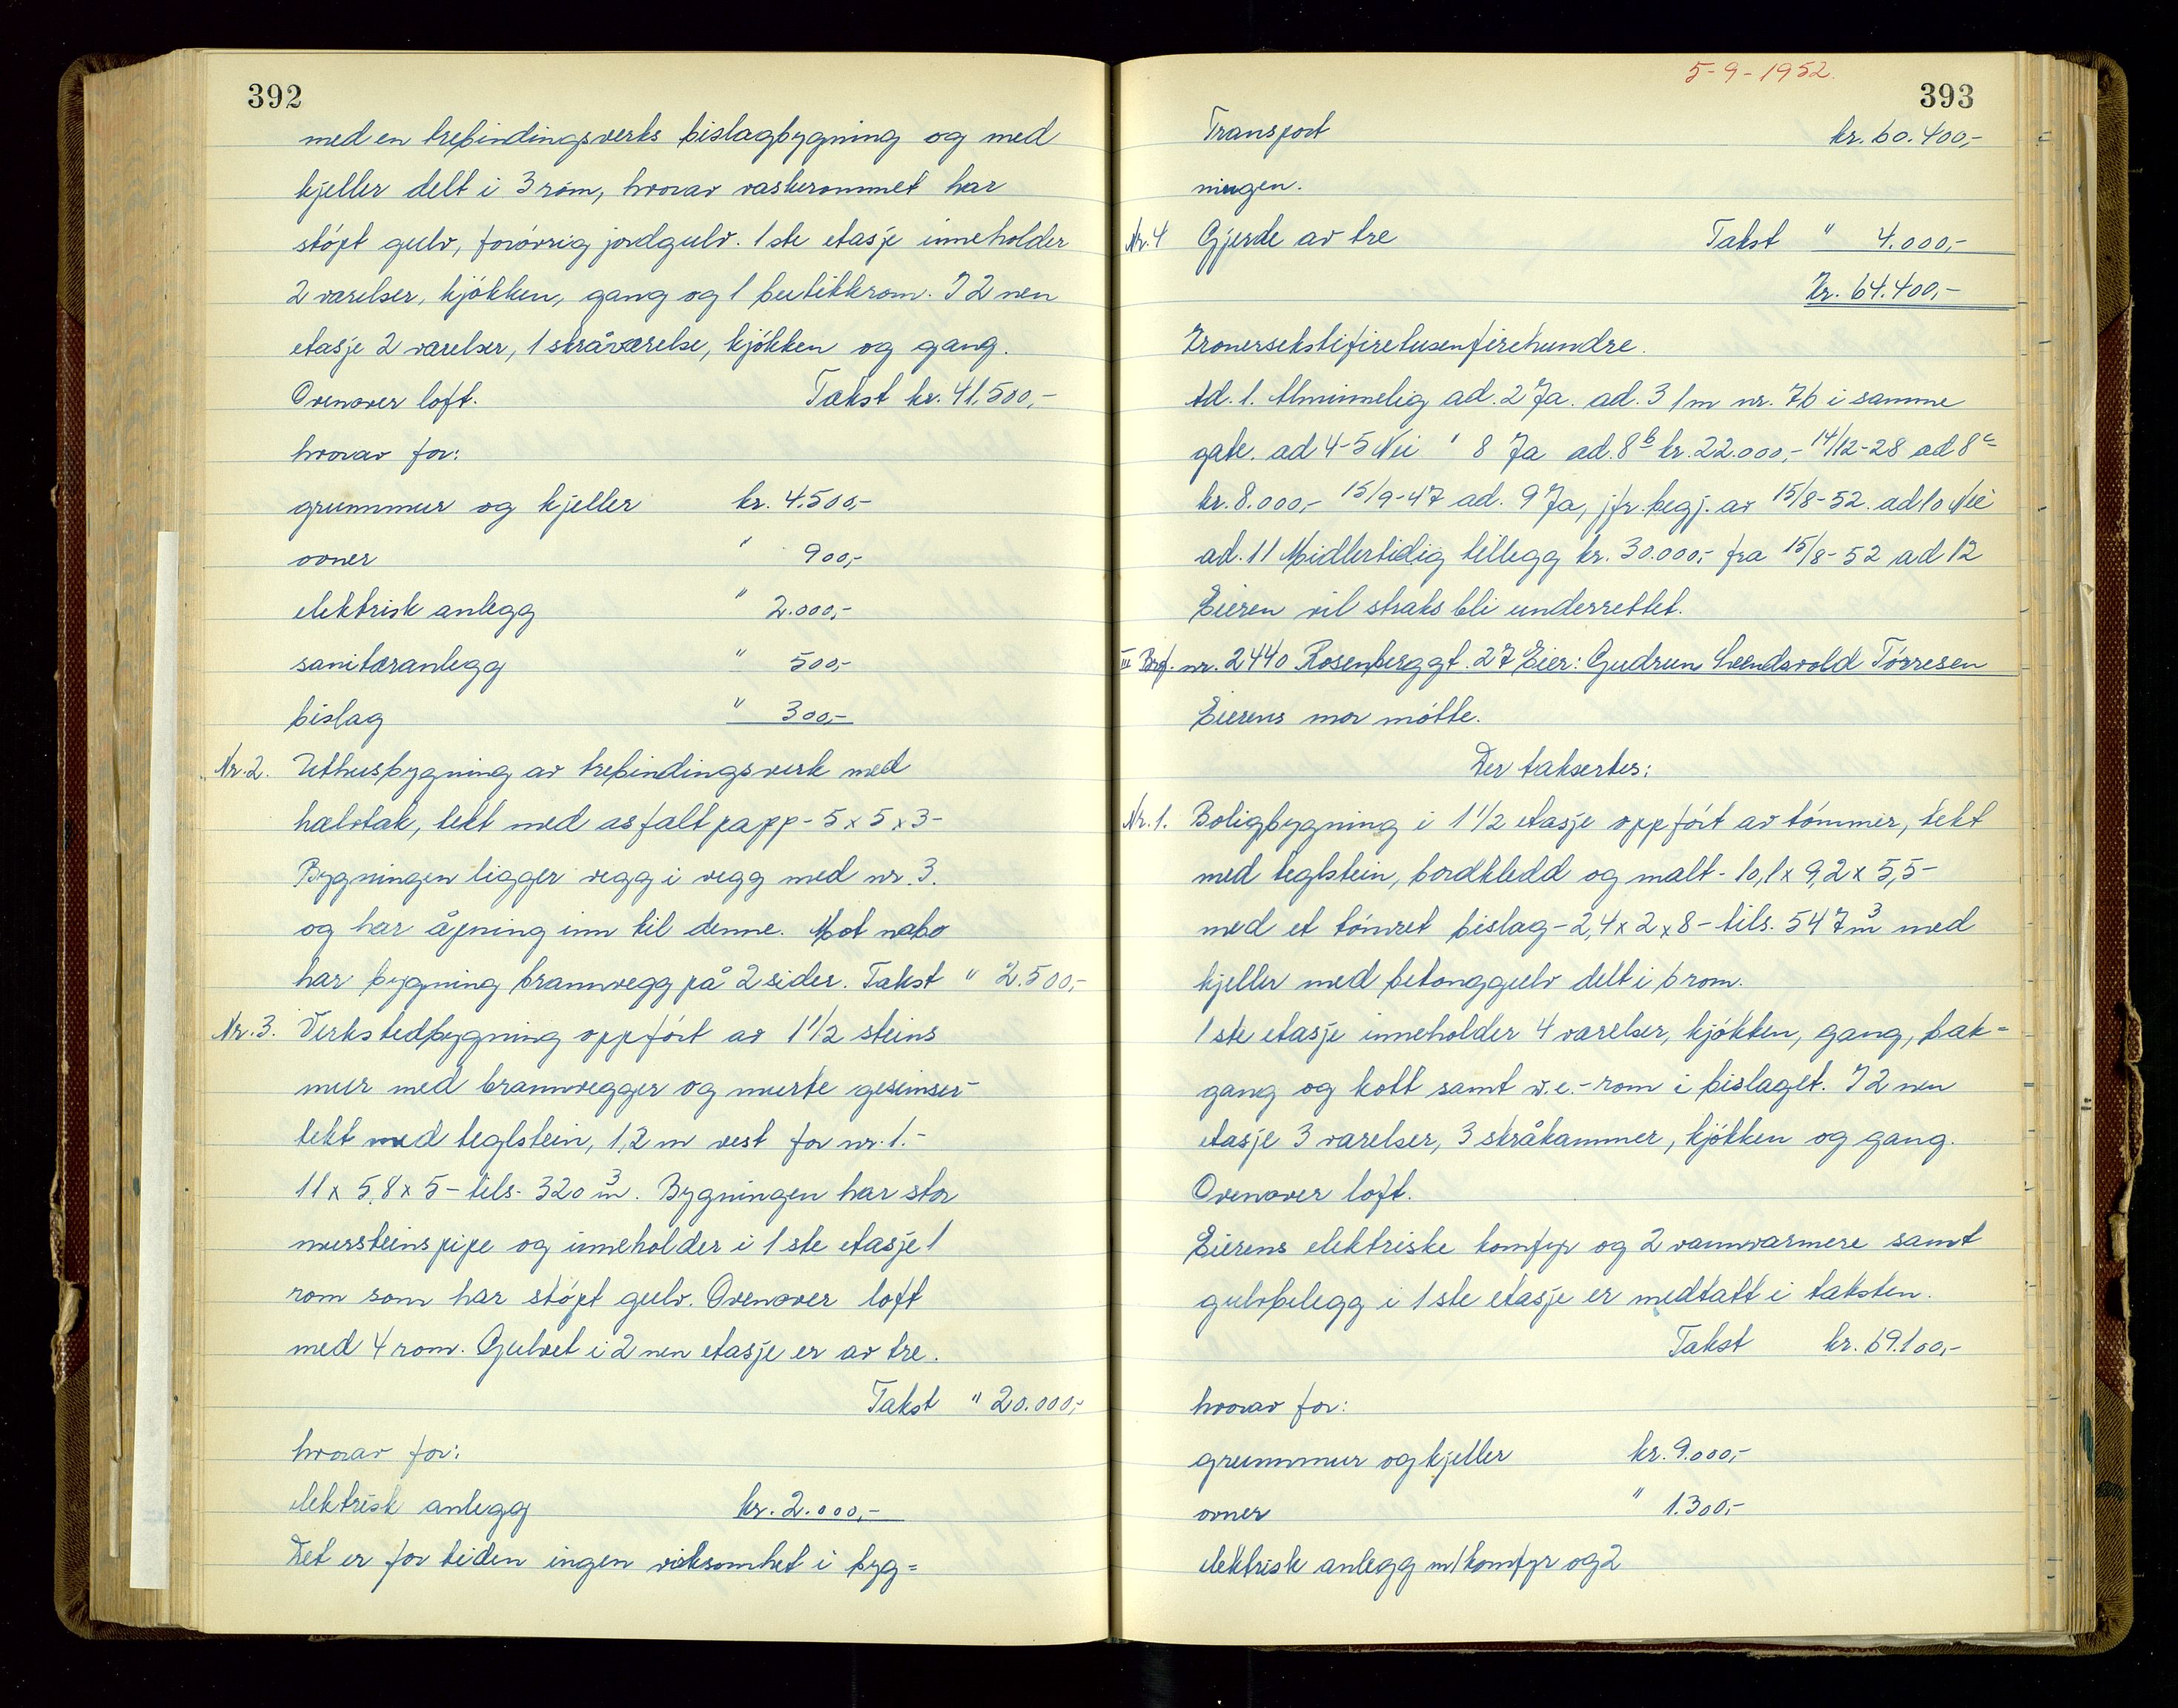 392
med en trebindingsverks bislagbygning og med
kjeller delt i 3 rom, hvorav vaskerommet har
støpt gulv, forøvrig jordgulv. 1ste etasje inneholder
2 værelser, kjøkken, gang og 1 butikkrom. I 2nen
etasje 2 værelser, 1 skråværelse, kjøkken og gang.
Ovenover loft. Takst kr. 41.500,-
hvorav for:
grunnmur og kjeller kr. 4.500,-
ovner " 900,-
elektrisk anlegg " 2.000,-
sanitæranlegg " 500,-
bislag " 300,-
Nr. 2. Uthusbygning av trebindingsverk med
halvtak, tekt med asfaltpapp - 5 x 5 x 3 -
Bygningen ligger vegg i vegg med nr. 3.
og har åpning inn til denne. Mot nabo
har bygning brannvegg på 2 sider. Takst " 2.500,-
Nr. 3. Verkstedbygning oppført av 1 1/2 steins
mur med brannvegger og murte gesimser -
tekt med teglstein, 1,2 m vest for nr. 1. -
11 x 5,8 x 5 - tils. 320 m³. Bygningen har stor
mursteinspipe og inneholder i 1ste etasje 1
rom som har støpt gulv. Ovenover loft
med 4 rom. Gulvet i 2nen etasje er av tre.
Takst " 20.000,-
hvorav for:
elektrisk anlegg kr. 2.000,-
Det er for tiden ingen virksomhet i byg=
5-9-1952.
393
Transport kr. 60.400,-
ningen.
Nr. 4 Gjerde av tre Takst " 4.000,-
Kr. 64.400,-
Kronersekstifiretusenfirehundre.
Ad. 1. Alminnelig ad. 2 Ja. ad. 3 1 m nr. 76 i samme
gate. ad 4-5 Nei " 8 Ja ad. 8b kr. 22.000,- 14/12-28 ad 8c
kr. 8.000,- 15/9-47 ad. 9 Ja, jfr. begj. av 15/8-52. ad 10 Nei
ad. 11 Midlertidig tillegg kr. 30.000,- fra 15/8-52 ad 12
Eieren vil straks bli underrettet.
III Brf. nr. 2440 Rosenberggt. 27 Eier: Gudrun Svendsvold Tørresen
Eierens mor møtte.
Der taksertes:
Nr. 1. Boligbygning i 1 1/2 etasje oppført av tømmer, tekt
med teglstein, bordkledd og malt - 10,1 x 9,2 x 5,5 -
med et tømret bislag - 2,4 x 2 x 8 - tils. 547 m³ med
kjeller med betonggulv delt i 6 rom.
1ste etasje inneholder 4 værelser, kjøkken, gang, bak=
gang og kott samt w.c.-rom i bislaget. I 2nen
etasje 3 værelser, 3 skråkammer, kjøkken og gang.
Ovenover loft.
Eierens elektriske komfyr og 2 vannvarmere samt
gulvbelegg i 1ste etasje er medtatt i taksten.
Takst kr. 69.100,-
hvorav for:
grunnmur og kjeller kr. 9.000,-
ovner " 1.300,-
elektrisk anlegg m/komfyr og 2